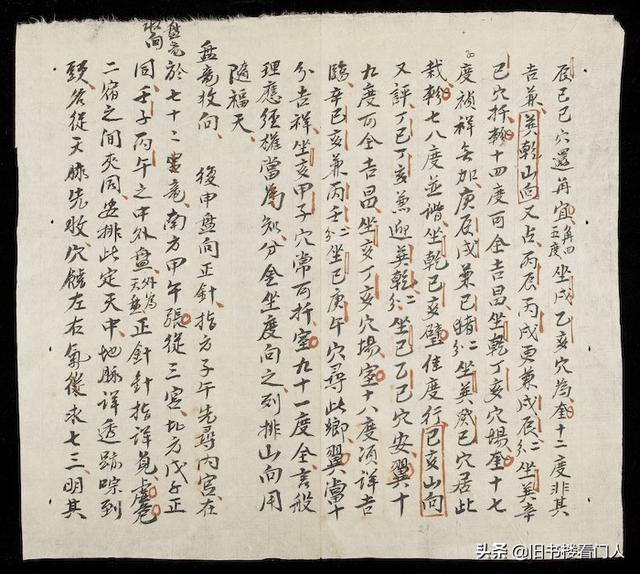 辰己巳穴還再宜角四五度坐戌乙亥穴為奎十二度非其
吉兼巽乾山向又占丙辰丙戌更兼戌辰二分坐巽辛
巳穴扦軫十四度可全吉昌坐乾丁亥穴場奎十七
度禎祥無加庚辰戌兼巳二分坐巽癸巳穴居此
栽軫七八度並谐坐乾己亥壁佳度行巳亥山向
又評丁巳丁亥兼巽乾二分坐巳乙巳穴安翼十
九度可全吉昌坐亥丁亥穴場室十八度消詳吉
臨辛巳亥兼丙壬二分坐巳庚午穴尋此鄉翼當十
分吉祥坐亥甲子穴常可扦室九十一度全言般
理應經雄當為知分金坐度向之列排山向用
隨福天
盤竜放向 復申盤向正針指方子午先尋內宮在
盤竜
於七十二宮竜南方甲午張從三宮北方戊子正
同壬子丙午之中外盤外為天盤正針針指詳覓虛危
二宿之間夾同安排此定天中地脉詳透踪到
頭名從天脉先收穴饒左右氣從求七三明其
头条 @旧书楼看门人